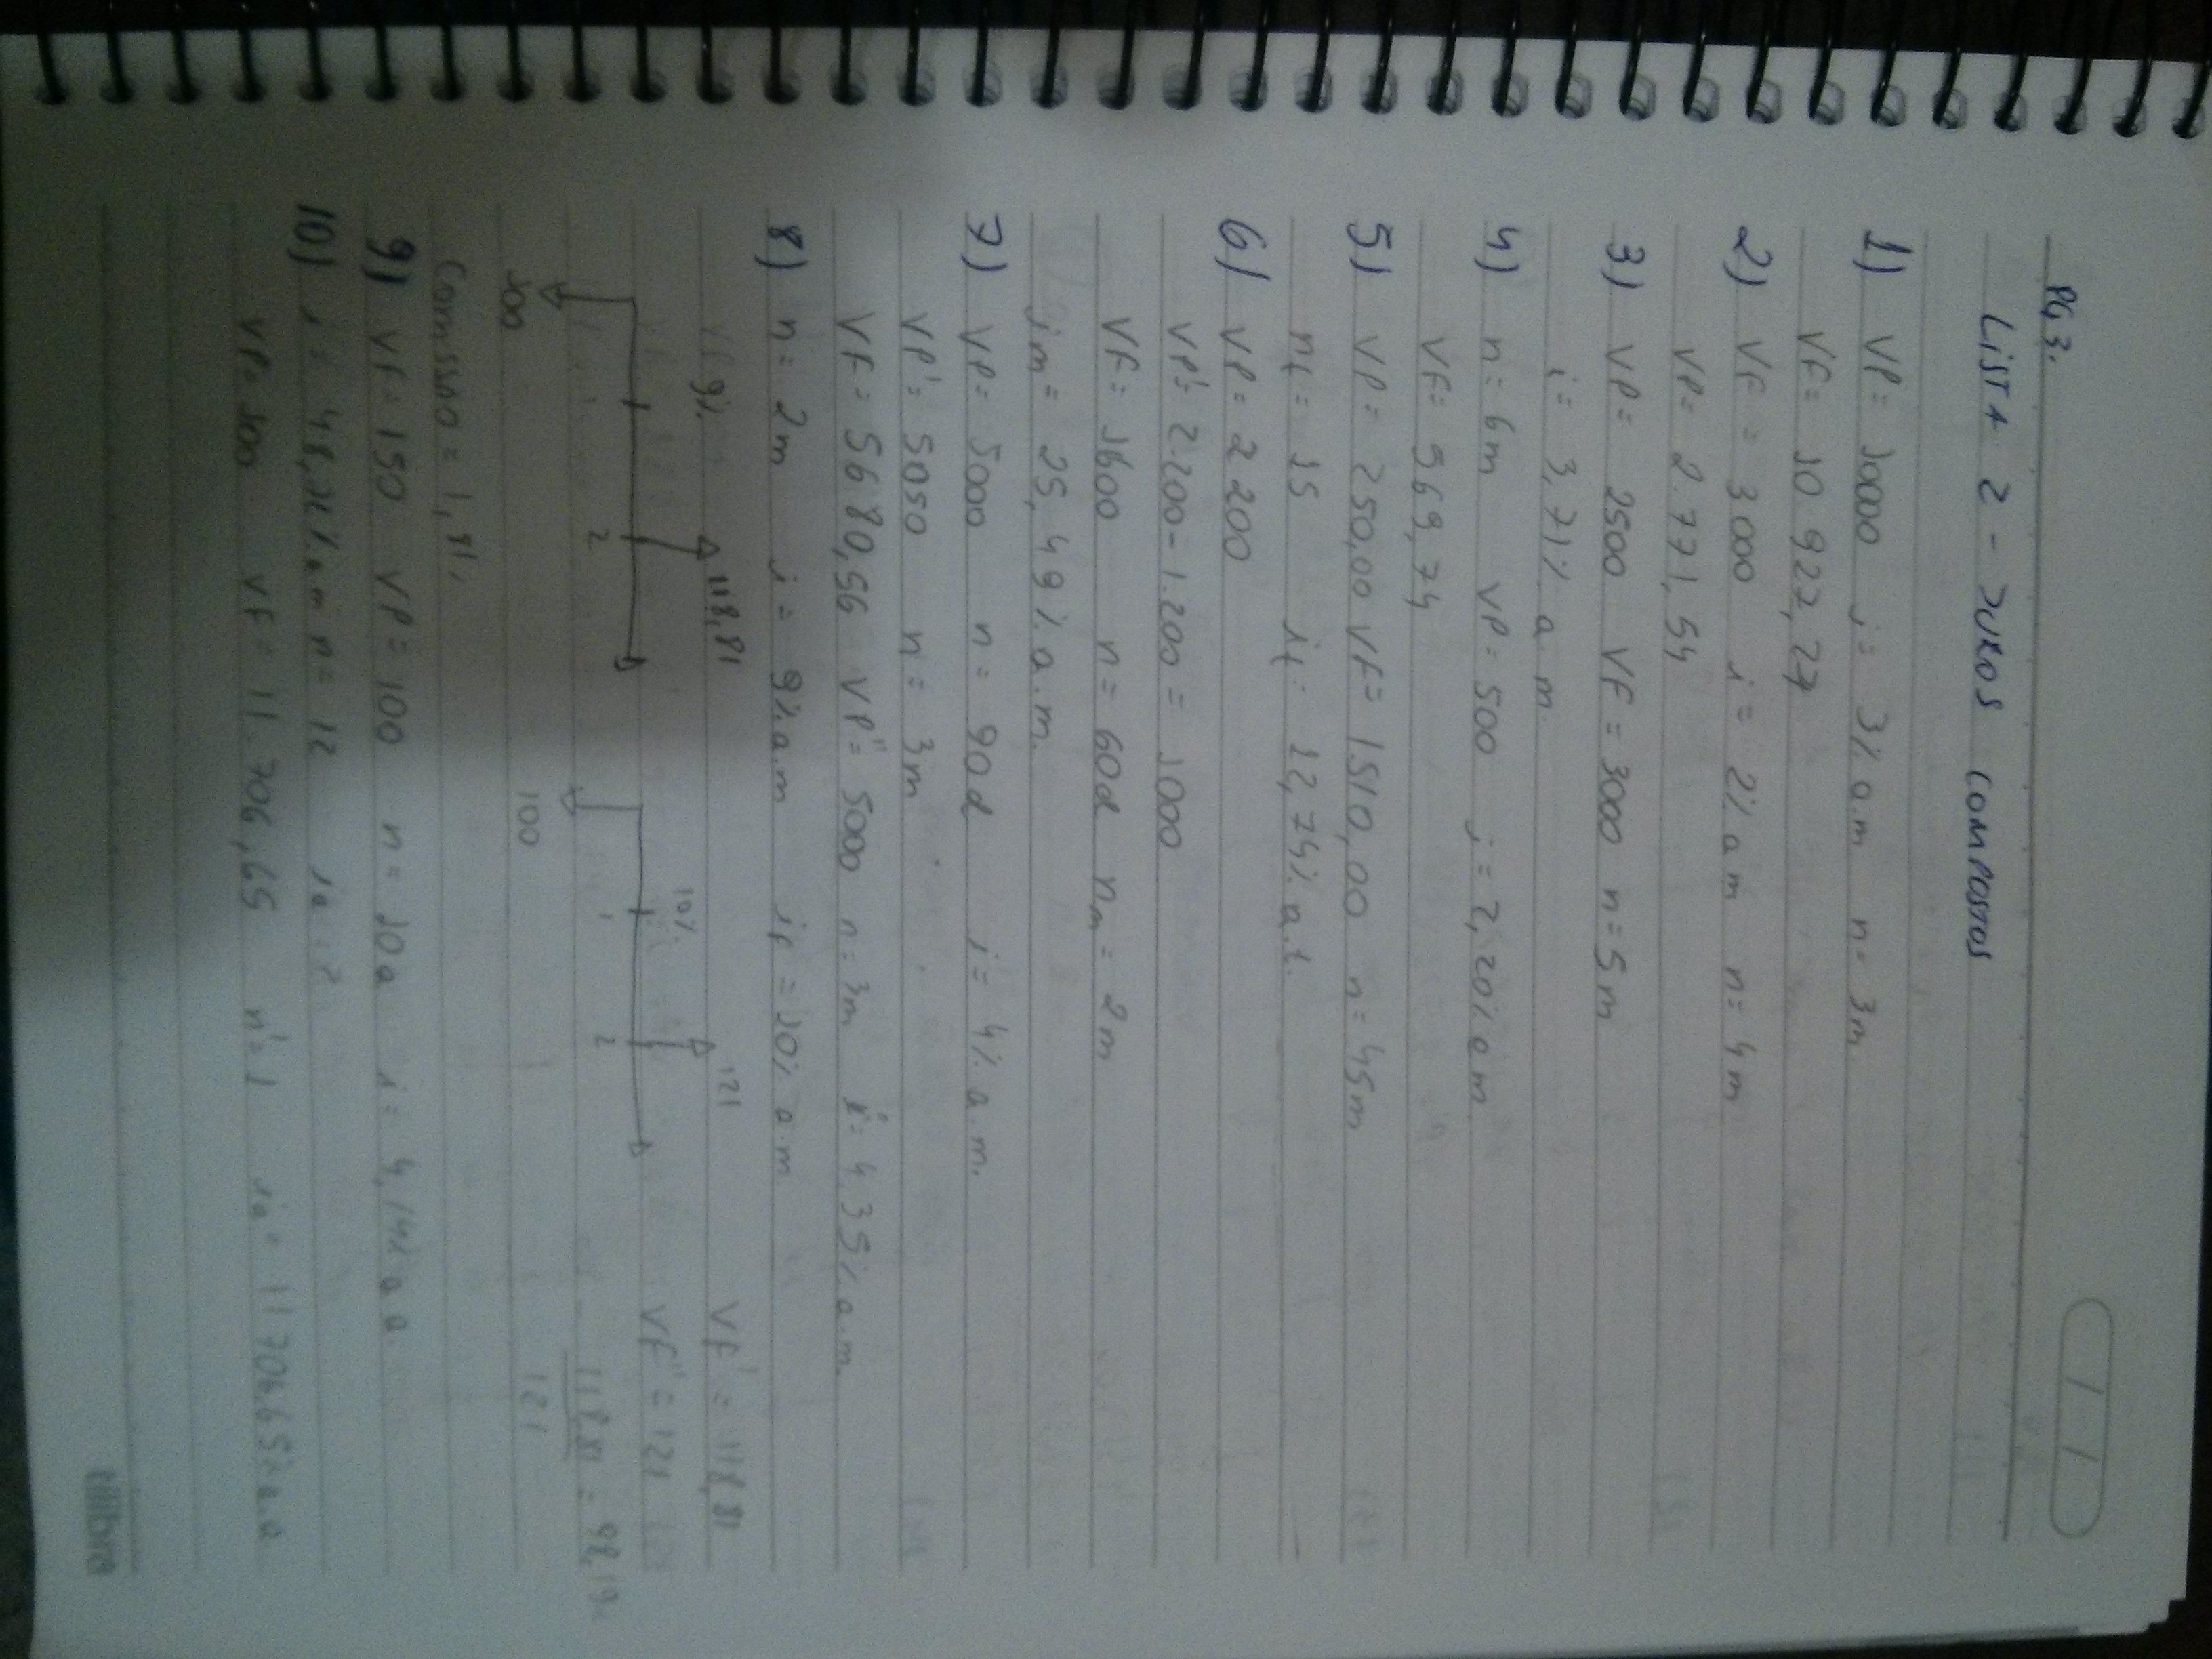 PG 3.
LISTA 2 - JUROS COMPOSTOS
1) VP= 10000 i= 3% a.m n= 3m
VF= 10 927,27
2) VF = 3000 i= 2% a m n= 4m
VP= 2.771,54
3) VP= 2500 VF = 3000 n=5m
i= 3,71% a. m.
4) n= 6m VP= 500 i= 2,20% a m
VF= 569,74
5) VP= 250,00 VF= 1510,00 n= 45m
nt= 15 it= 12,74% a.t.
6) VP= 2 200
VP'= 2.200-1.200= 1000
VF= 1600 n= 60d nm= 2m
im= 26,49% a.m.
7) VP= 5000 n= 90d i= 4% a.m.
VP'= 5050 n= 3m
VF= 5680,56 VP''= 5000 n= 3m i= 4.35% a.m.
8) n= 2m i= 9% a.m if =10% a.m
9% 118,81 10% 121 VF' = 118,81
VF'' = 121
2 1 2 118,81 = 98,19
100 100 121
Comissao = 1,81%
9) VF= 150 VP= 100 n= 10a i= 4,14% a a.
10) i= % am n= 12 ia ?
VP= 100 VF= 11.706,65 n'= 1 ia= 11706,65% a.a
tilibra